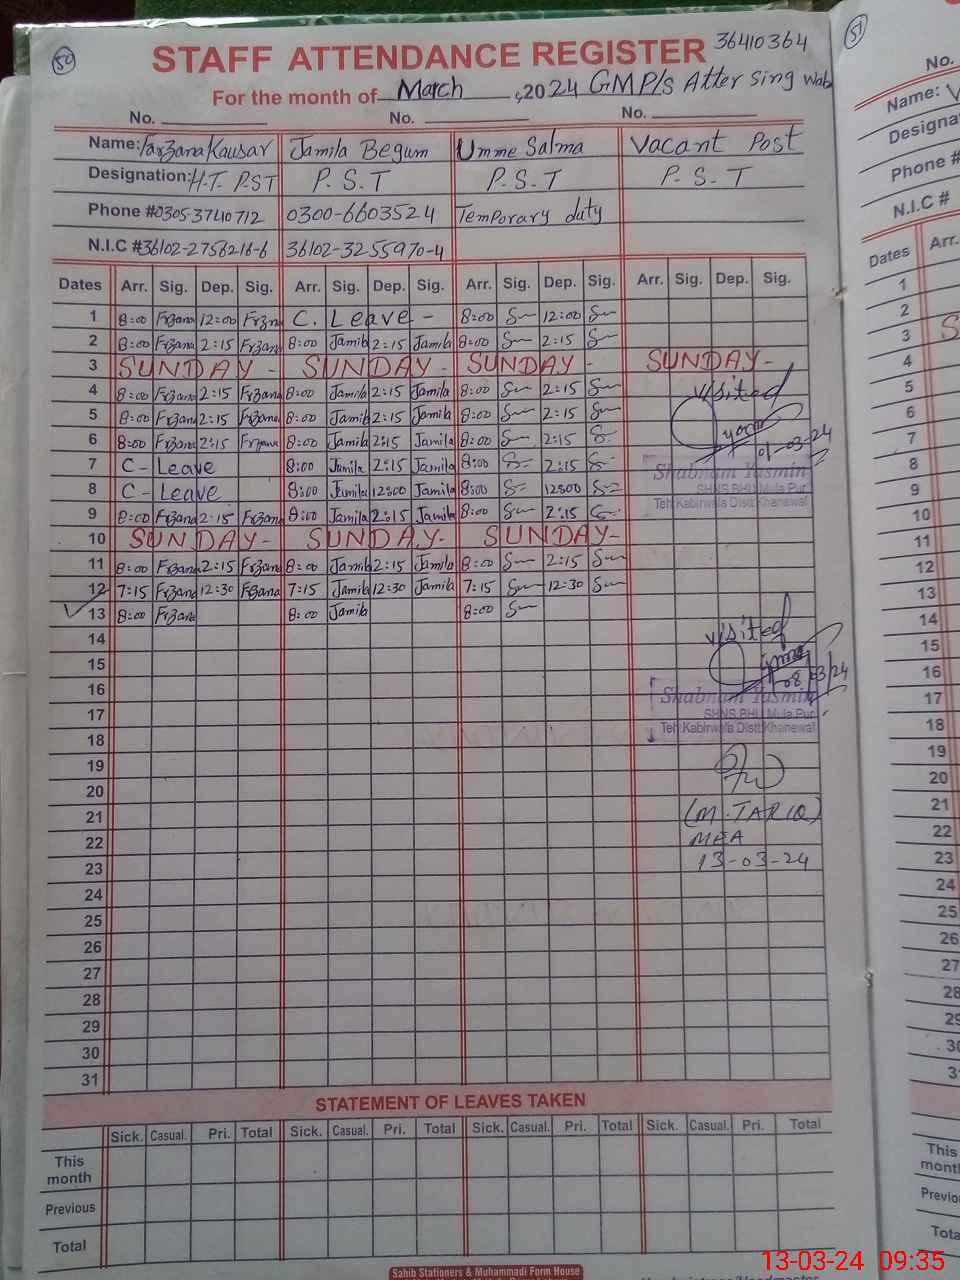 50
STAFF ATTENDANCE REGISTER 36410364
For the month of March, 2024 GMP/s Atter Sing Wala
No. No. No.
Name: Farzana Kausar Jamila Begum Umme Salma Vacant Post
Designation: H.T. P.ST P.S.T P.S.T P.S.T
Phone # 0305-3740712 0300-6603524 Temporary duty
N.I.C # 36102-2756216-6 36102-3255970-4
Dates Arr. Sig. Dep. Sig. Arr. Sig. Dep. Sig. Arr. Sig. Dep. Sig. Arr. Sig. Dep. Sig.
1 8:00 Frzana 12:00 Frzana C. Leave - 8:00 12:00
2 8:00 Frzana 2:15 Frzana 8:00 Jamila 2:15 Jamila 8:00 2:15
3 SUNDAY - SUNDAY - SUNDAY - SUNDAY -
4 8:00 Frzana 2:15 Frzana 8:00 Jamila 2:15 Jamila 8:00 2:15
5 8:00 Frzana 2:15 Frzana 8:00 Jamila 2:15 Jamila 8:00 2:15
6 8:00 Frzana 2:15 Frzana 8:00 Jamila 2:15 Jamila 8:00 2:15
7 C- Leave 8:00 Jamila 2:15 Jamila 8:00 2:15
8 C- Leave 8:00 Jamila 12:00 Jamila 8:00 12:00
9 8:00 Frzana 2:15 Frzana 8:00 Jamila 2:15 Jamila 8:00 2:15
10 SUNDAY- SUNDAY- SUNDAY-
11 8:00 Frzana 2:15 Frzana 8:00 Jamila 2:15 Jamila 8:00 2:15
12 7:15 Frzana 12:30 Frzana 7:15 Jamila 12:30 Jamila 7:15 12:30
13 8:00 Frzana 8:00 Jamila 8:00
14
15
16
17
18
19
20
21
22
23
24
25
26
27
28
29
30
31
visited
01-03-24
Shabnam Yasmin
SHNS BHU Mula Pur
Teh: Kabirwala Distt: Khanewal
visited
08/03/24
Shabnam Yasmin
SHNS BHU Mula Pur
Teh: Kabirwala Distt: Khanewal
(M. TARIQ)
MEA
13-03-24
STATEMENT OF LEAVES TAKEN
Sick. Casual. Pri. Total Sick. Casual. Pri. Total Sick. Casual. Pri. Total Sick. Casual. Pri. Total
This month
Previous
Total
Sahib Stationers & Muhammadi Form House
51
No.
Name:
Designa
Phone #
N.I.C #
Dates Arr.
1
2
3 S
4
5
6
7
8
9
10
11
12
13
14
15
16
17
18
19
20
21
22
23
24
25
26
27
28
29
30
3
This
month
Previo
Tota
13-03-24 09:35